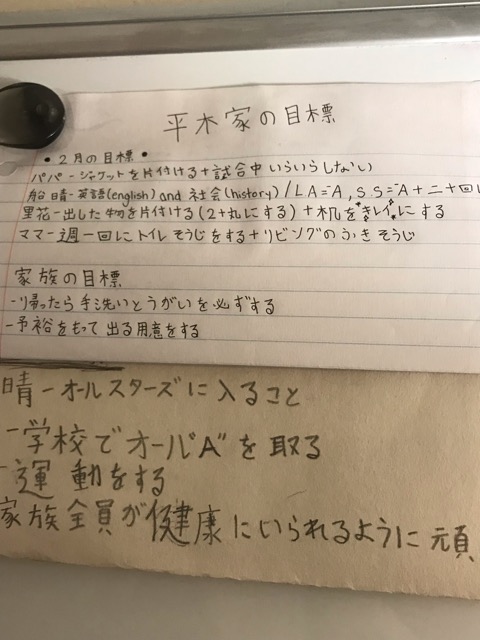 平木家の目標
•2月の目標•
パパ-ジャケットを片付ける+試合中いらいらしない
船晴-英語(english) and 社会(history) / LA=A, SS=A+二十回
里花-出した物を片付ける(2+丸にする)+机をきレイにする
ママ-週一回にトイレそうじをする+リビングのふきそうじ
家族の目標
-帰ったら手洗いとうがいを必ずする
-予裕をもって出る用意をする
晴-オールスターズに入ること
-学校でオール"A"を取る
-運動をする
家族全員が健康にいられるように頑